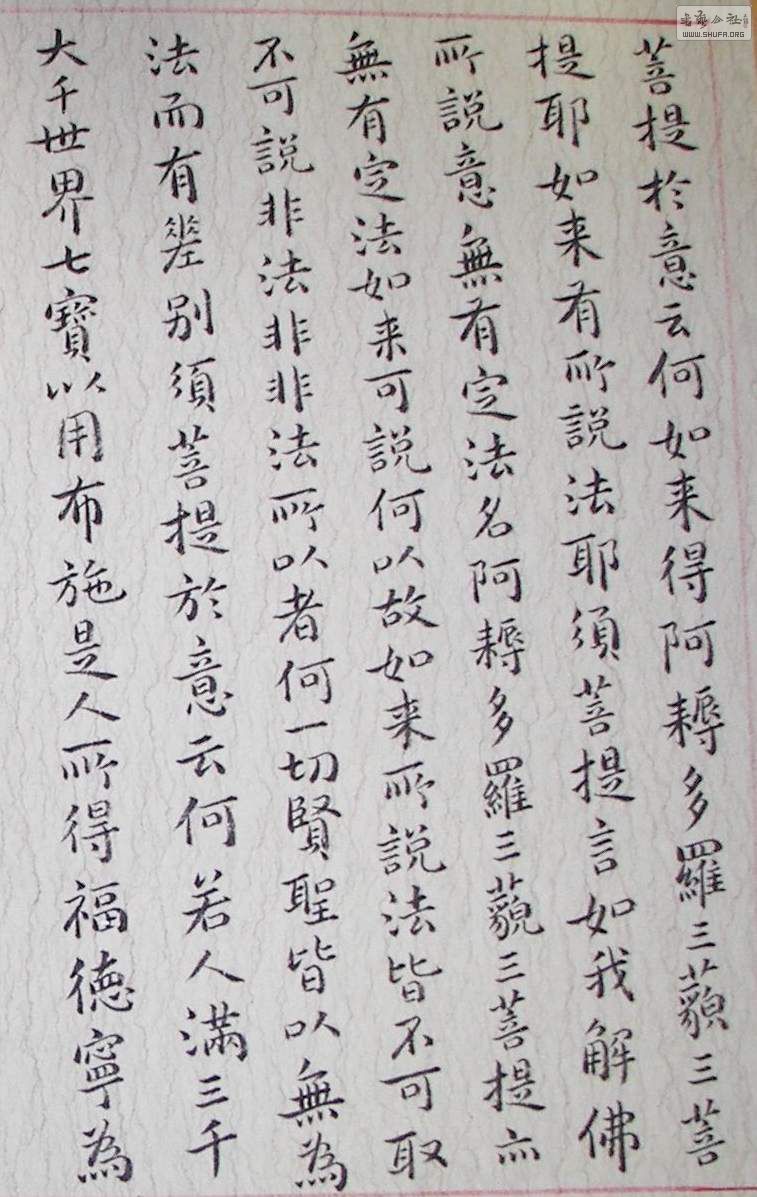 菩提於意云何如来得阿耨多羅三藐三菩
提耶如来有所説法耶須菩提言如我解佛
所説意無有定法名阿耨多羅三藐三菩提亦
無有定法如来可説何以故如来所説法皆不可取
不可説非法非非法所以者何一切賢聖皆以無為
法而有差别須菩提於意云何若人滿三千
大千世界七寶以用布施是人所得福德寧為
書法公社
WWW.SHUFA.ORG